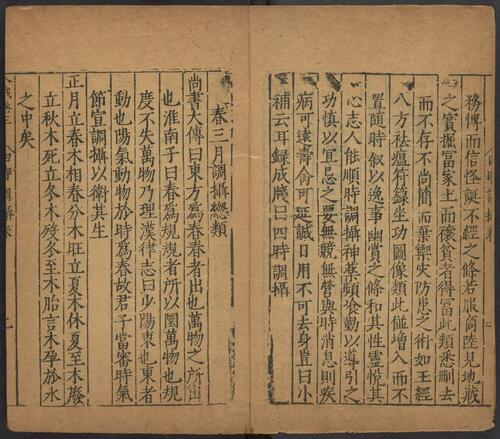 務博而信怪誕不經之條若服商陸見地藏
之寶掘富家土而禳貧者得富此類悉刪去
而不存不尚簡而棄禦災防患之術如王經
八方祛瘟符籙坐功圖像類此俱增入而不
置隨時叙以逸事幽賞之條和其性靈悅其
心志人能順時調攝神藥頻飡勤以導引之
功慎以宜忌之要無競無營與時消息則疾
病可遠壽命可延誠日用不可去身豈曰小
補云耳録成牋曰四時調攝
春三月調攝總類
尚書大傳曰東方爲春春者出也萬物之所出
也淮南子曰春爲規規者所以圜萬物也規
度不失萬物乃理漢律志曰少陽東也東者
動也陽氣動物於時爲春故君子當審時氣
節宣調攝以衛其生
正月立春木相春分木旺立夏木休夏至木廢
立秋木死立冬木歿冬至木胎言木孕於水
之中矣